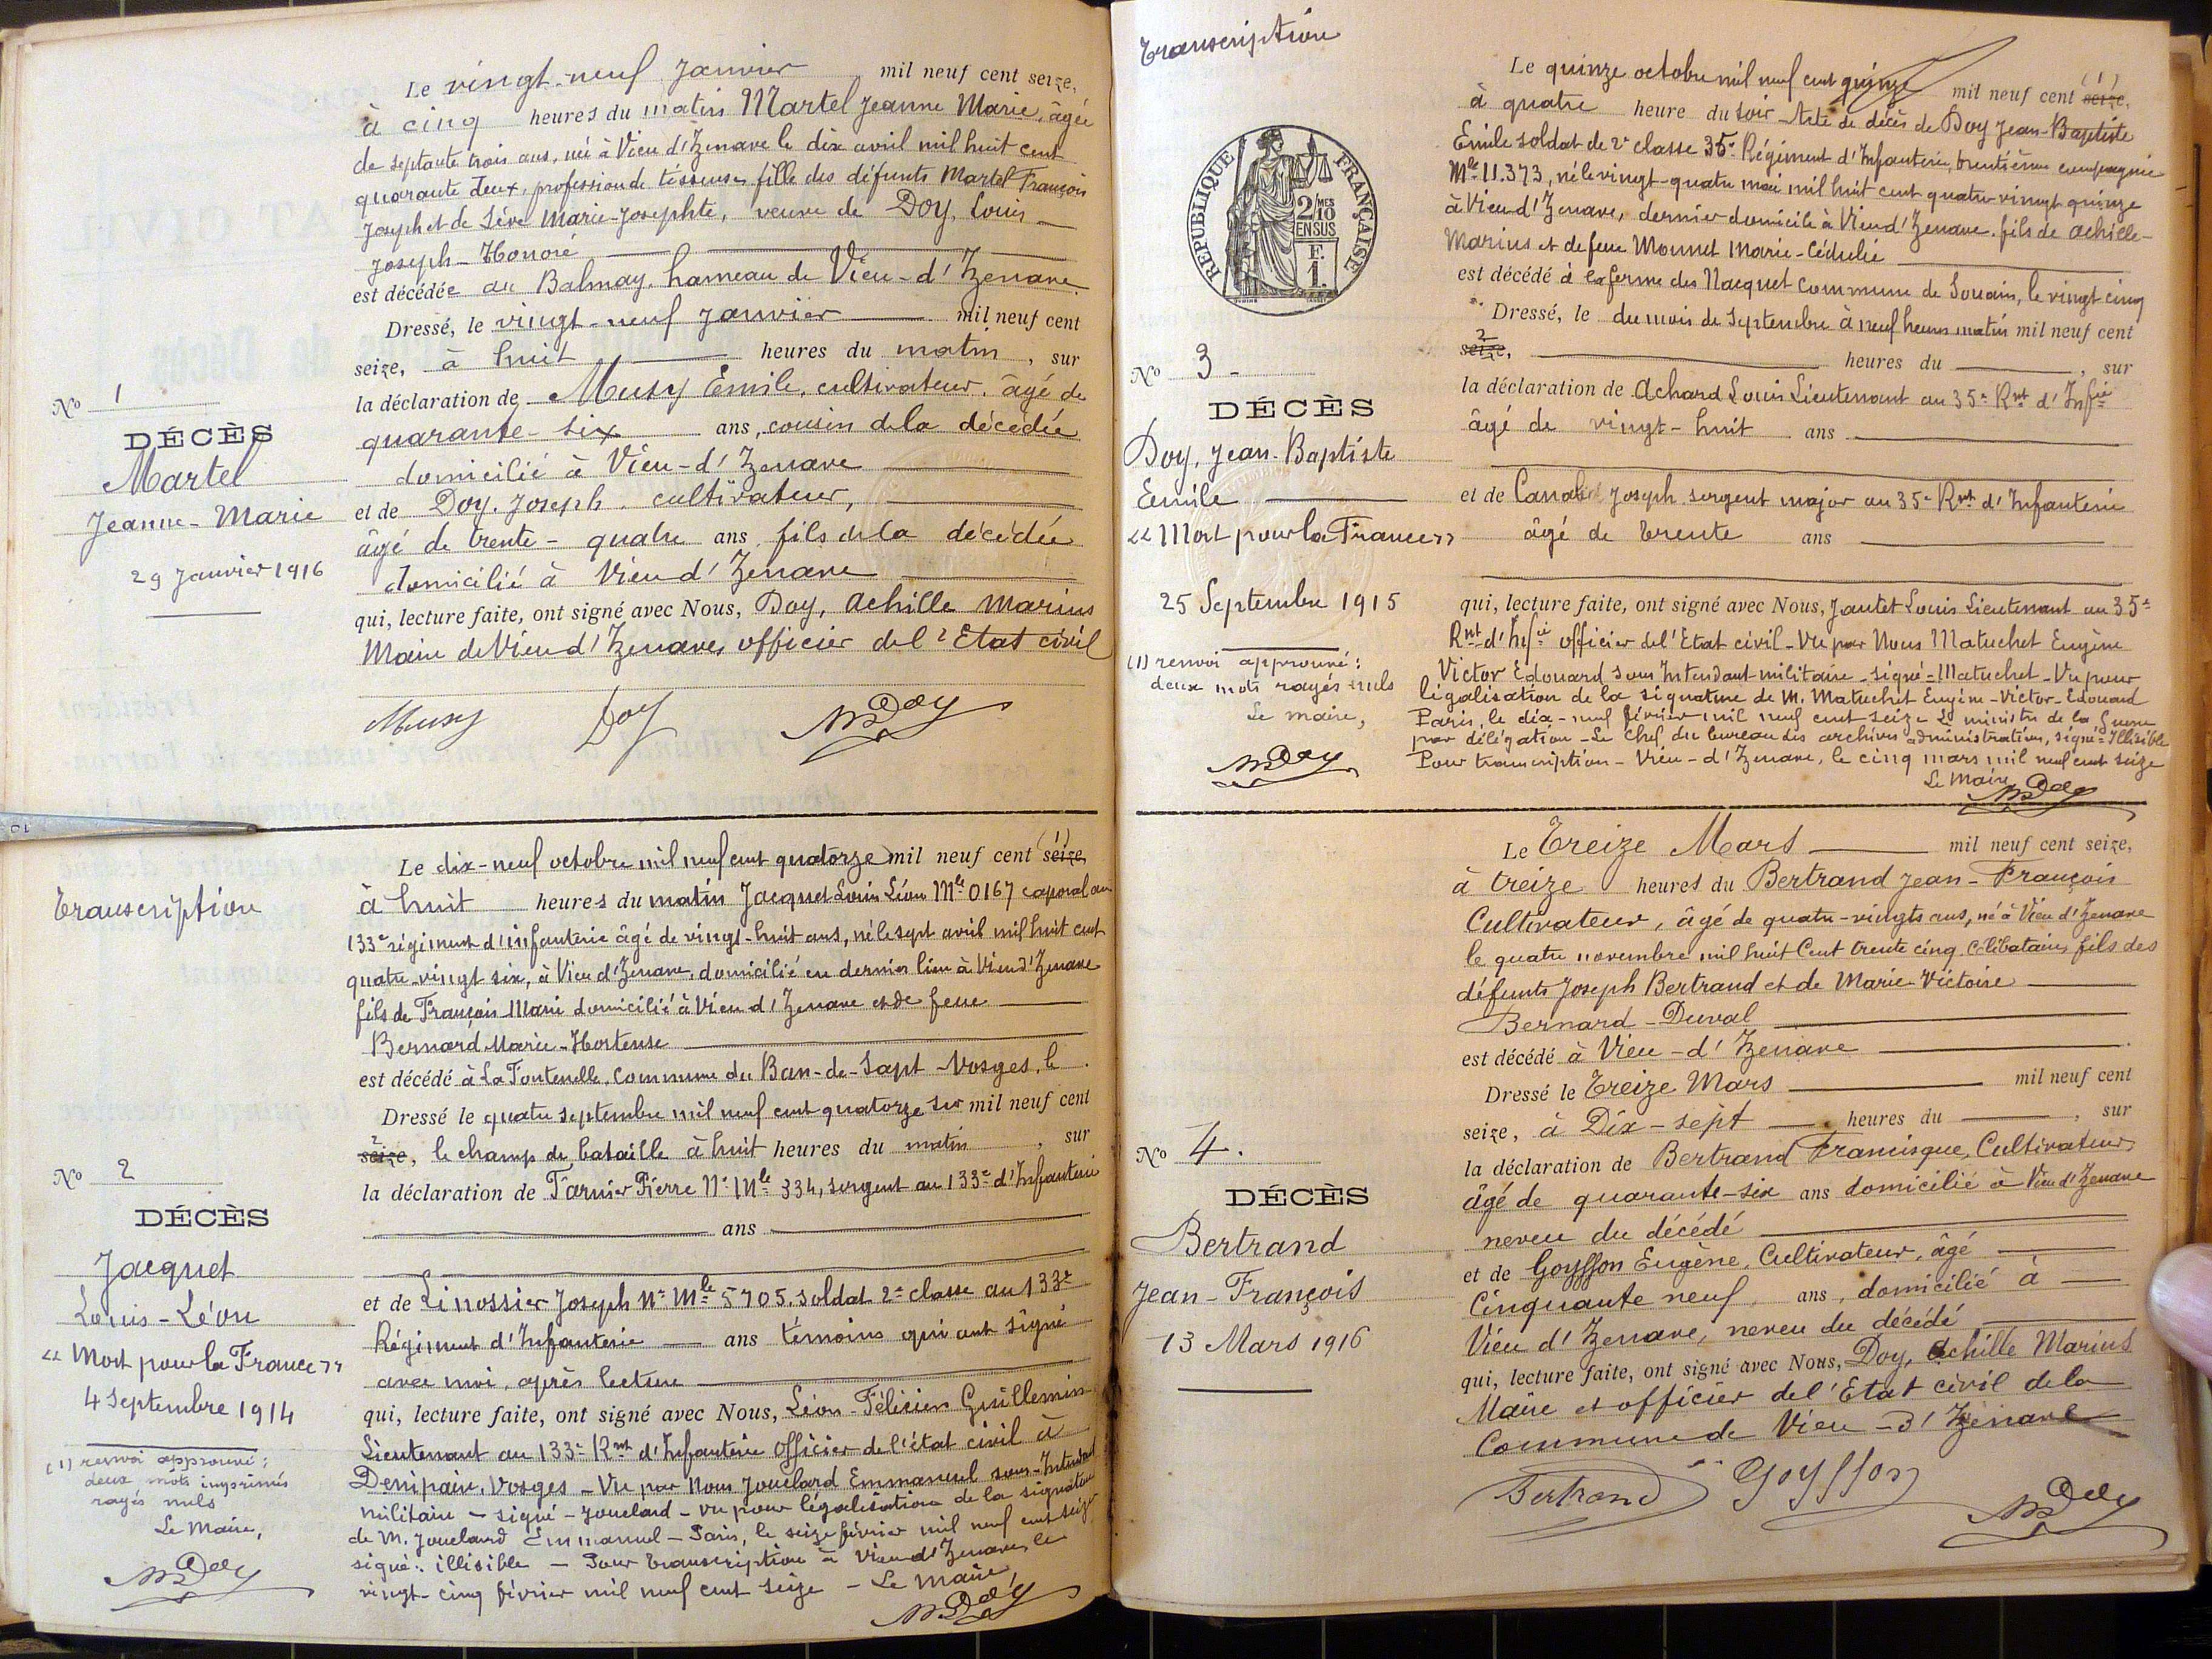 Le vingt-neuf Janvier mil neuf cent seize,
à cinq heures du matin Martel Jeanne Marie, âgée
de septante trois ans, née à Vieu d'Izenave le dix avril mil huit cent
quarante deux, profession de tisseuse, fille des défunts Martel François
Joseph et de Sève Marie-Josephte, veuve de Doy, Louis
Joseph-Honoré
est décédée au Balmay, hameau de Vieu-d'Izenave
Dressé, le vingt-neuf Janvier mil neuf cent
seize, à huit heures du matin, sur
la déclaration de Musy Emile, cultivateur, âgé de
quarante-six ans, cousin de la décédée
domicilié à Vieu-d'Izenave
et de Doy, Joseph, cultivateur,
âgé de trente-quatre ans, fils de la décédée
domicilié à Vieu d'Izenave
qui, lecture faite, ont signé avec Nous, Doy, Achille Marius
Maire de Vieu d'Izenave, officier de l'Etat civil
Musy Doy MDoy
No 1
DÉCÈS
Martel
Jeanne-Marie
29 Janvier 1916
Transcription
No 2
DÉCÈS
Jacquet
Louis-Léon
«Mort pour la France»
4 Septembre 1914
(1) renvoi approuvé;
deux mots imprimés
rayés nuls
Le Maire,
MDoy
Le dix-neuf octobre mil neuf cent quatorze mil neuf cent (1) seize,
à huit heures du matin Jacquet Louis Léon Mle 0167 caporal au
133e régiment d'infanterie âgé de vingt-huit ans, né le sept avril mil huit cent
quatre-vingt six, à Vieu d'Izenave, domicilié en dernier lieu à Vieu d'Izenave
fils de François-Marie domicilié à Vieu d'Izenave et de feue
Bernard Marie-Hortense
est décédé à La Fontenelle, commune du Ban-de-Sapt-Vosges, le
Dressé le quatre septembre mil neuf cent quatorze sur mil neuf cent
2 seize, le champ de bataille à huit heures du matin, sur
la déclaration de Farnier Pierre No Mle 334, sergent au 133e d'Infanterie
ans
et de Linossier Joseph No Mle 5705. Soldat 2e classe au 133e
Régiment d'Infanterie ans témoins qui ont signé
avec moi, après lecture
qui, lecture faite, ont signé avec Nous, Léon-Félicien Guillemin
Lieutenant au 133e Rnt d'Infanterie officier de l'état civil à
Denipaire, Vosges - Vu par Nous Jouclard Emmanuel sous-Intendant
militaire - signé - Jouclard - vu pour légalisation de la signature
de M. Jouclard Emmanuel - Paris, le seize février mil neuf cent seize
signé: illisible - Pour transcription à Vieu d'Izenave, le
vingt-cinq février mil neuf cent seize - Le Maire,
MDoy
Transcription
REPUBLIQUE FRANÇAISE
2 MES
10
EN SUS
F.
1.
No 3
DÉCÈS
Doy, Jean-Baptiste
Emile
«Mort pour la France»
25 Septembre 1915
(1) renvoi approuvé:
deux mots rayés nuls
Le maire,
MDoy
Le quinze octobre mil neuf cent quinze mil neuf cent (1) seize,
à quatre heure du soir Acte de décès de Doy Jean-Baptiste
Emile soldat de 2e classe 35e Régiment d'Infanterie, trentième compagnie
Mle 11.373, né le vingt-quatre mai mil huit cent quatre vingt quinze
à Vieu d'Izenave, dernier domicile à Vieu d'Izenave, fils de Achille-
Marius et de feue Monnet Marie-Cédulie
est décédé à la ferme des Nacquet commune de Souain, le vingt cinq
Dressé, le du mois de Septembre à neuf heures matin mil neuf cent
2 seize, heures du , sur
la déclaration de Achard Louis Lieutenant au 35e Rnt d'Infie
âgé de vingt-huit ans
et de Joseph sergent major au 35e Rnt d'Infanterie
âgé de trente ans
qui, lecture faite, ont signé avec Nous, Jantet Louis Lieutenant au 35e
Rnt d'Infie officier de l'Etat civil - Vu par Nous Matuchet Eugène
Victor Edouard sous Intendant militaire - signé = Matuchet - Vu pour
légalisation de la signature de M. Matuchet Eugène-Victor-Edouard
Paris, le dix-neuf février mil neuf cent seize Le ministre de la Guerre
par délégation - Le Chef du bureau des archives administratives, signé = Illisible
Pour transcription - Vieu-d'Izenave, le cinq mars mil neuf cent seize
Le Maire
MDoy
No 4.
DÉCÈS
Bertrand
Jean-François
13 Mars 1916
Le Treize Mars mil neuf cent seize,
à treize heures du Bertrand Jean-François
Cultivateur, âgé de quatre-vingts ans, né à Vieu d'Izenave
le quatre novembre mil huit Cent trente cinq Célibataire, fils des
défunts Joseph Bertrand et de Marie-Victoire
Bernard-Duval
est décédé à Vieu-d'Izenave
Dressé le Treize Mars mil neuf cent
seize, à Dix-sept heures du , sur
la déclaration de Bertrand Francisque, Cultivateur,
âgé de quarante-six ans domicilié à Vieu d'Izenave
neveu du décédé
et de Goyffon Eugène, Cultivateur, âgé
Cinquante neuf ans, domicilié à
Vieu d'Izenave, neveu du décédé
qui, lecture faite, ont signé avec Nous, Doy, Achille Marius
Maire et officier de l'Etat civil de la
Commune de Vieu-d'Izenave
Bertrand Goyffon MDoy